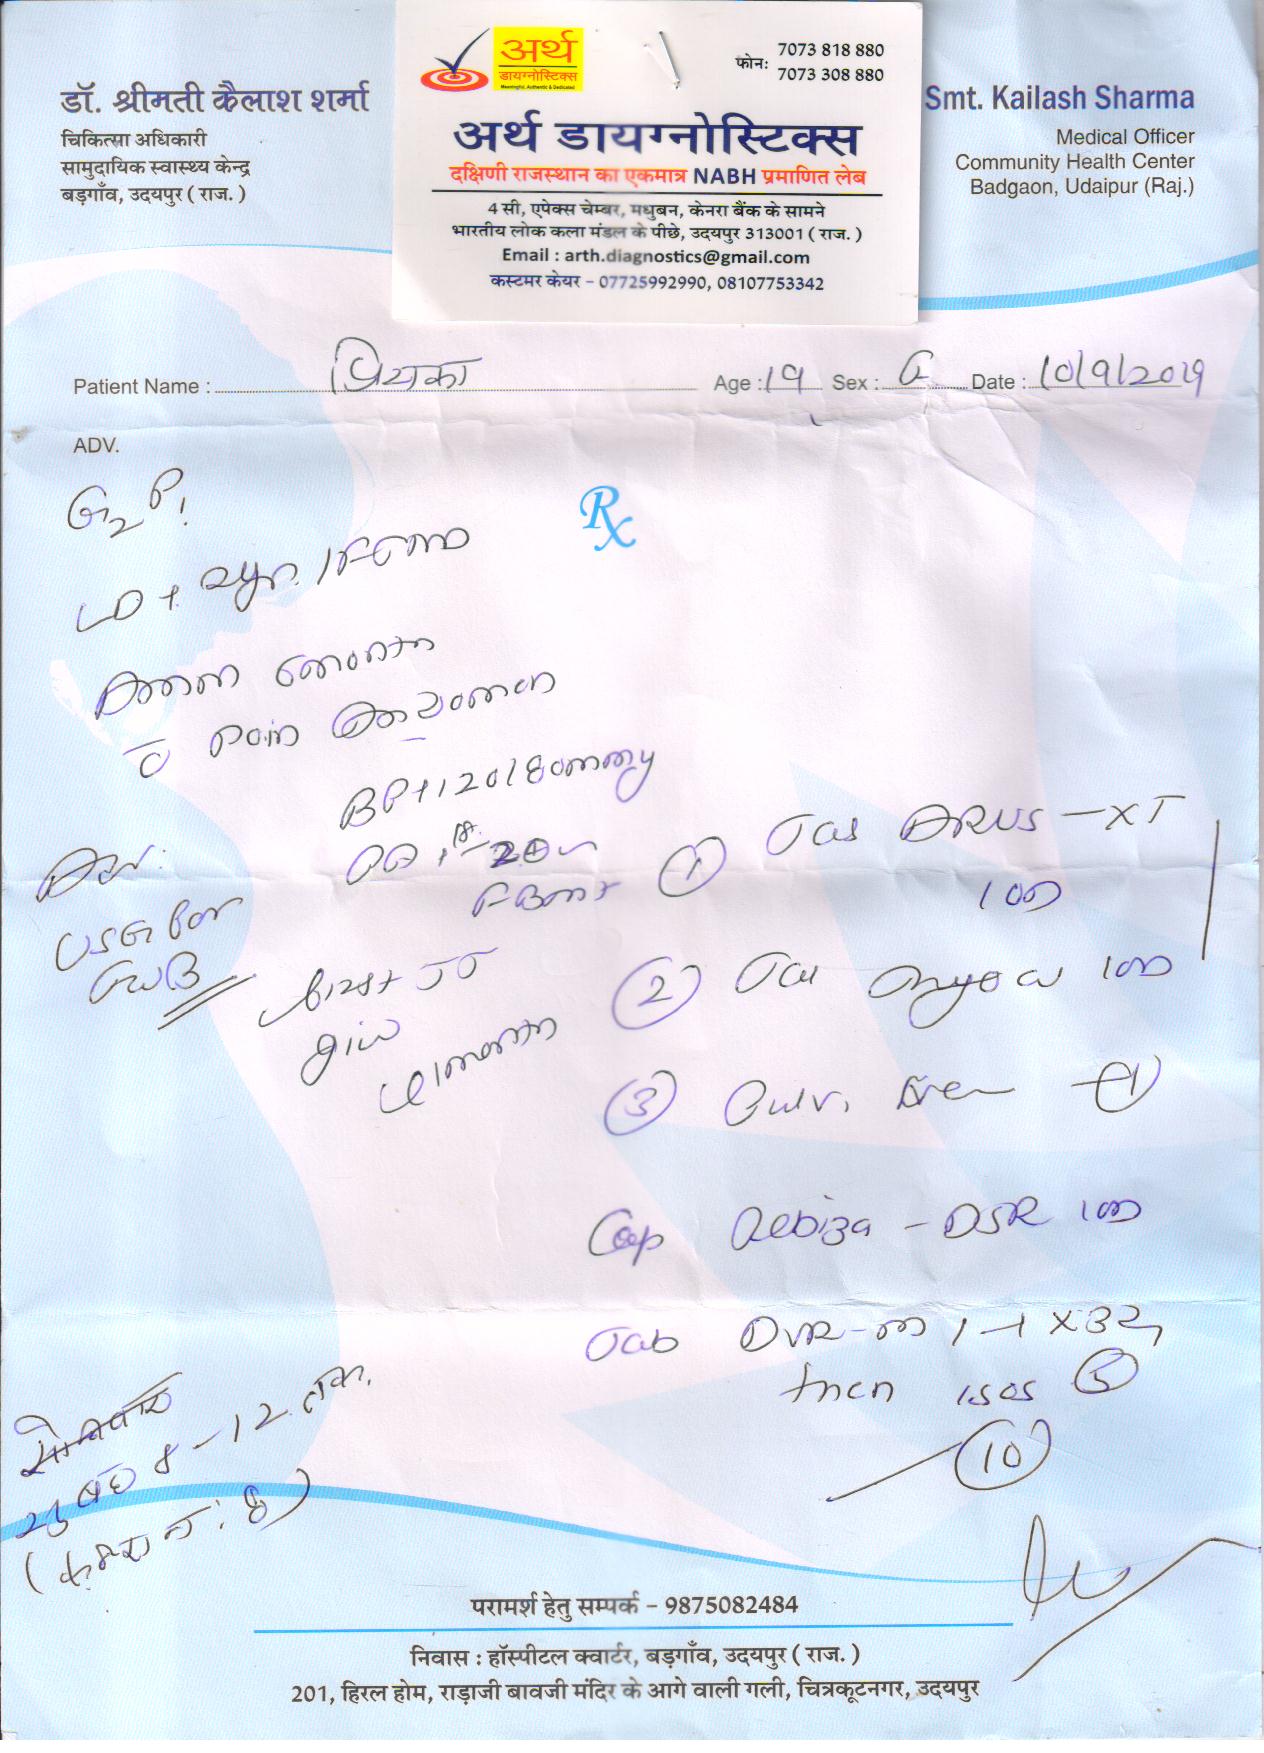 डॉ. श्रीमती कैलाश शर्मा
चिकित्सा अधिकारी
सामुदायिक स्वास्थ्य केन्द्र
बड़गाँव, उदयपुर ( राज. )
अर्थ
डायग्नोस्टिक्स
Meaningful, Authentic & Dedicated
फोनः 7073 818 880
7073 308 880
अर्थ डायग्नोस्टिक्स
दक्षिणी राजस्थान का एकमात्र NABH प्रमाणित लेब
4 सी, एपेक्स चेम्बर, मधुबन, केनरा बैंक के सामने
भारतीय लोक कला मंडल के पीछे, उदयपुर 313001 ( राज. )
Email : arth.diagnostics@gmail.com
कस्टमर केयर – 07725992990, 08107753342
Smt. Kailash Sharma
Medical Officer
Community Health Center
Badgaon, Udaipur (Raj.)
Patient Name : प्रियंका Age : 19 Sex : Date : 10/9/2019
ADV.
G2 P1
Rx
LD +
month
c pain
BP + 120/80 mmHg
USG for
FWB
first TT
give
1 month
① Tab - XT
100
② Tab 100
③ Pulv.
Cap Rebiza - DSR 100
Tab - M 1-1 X 3
then 1 SOS ⑤
⑩
सुबह 8 - 12 तक.
( कमरा नं : 8 )
परामर्श हेतु सम्पर्क – 9875082484
निवास : हॉस्पीटल क्वार्टर, बड़गाँव, उदयपुर ( राज. )
201, हिरल होम, राड़ाजी बावजी मंदिर के आगे वाली गली, चित्रकूटनगर, उदयपुर